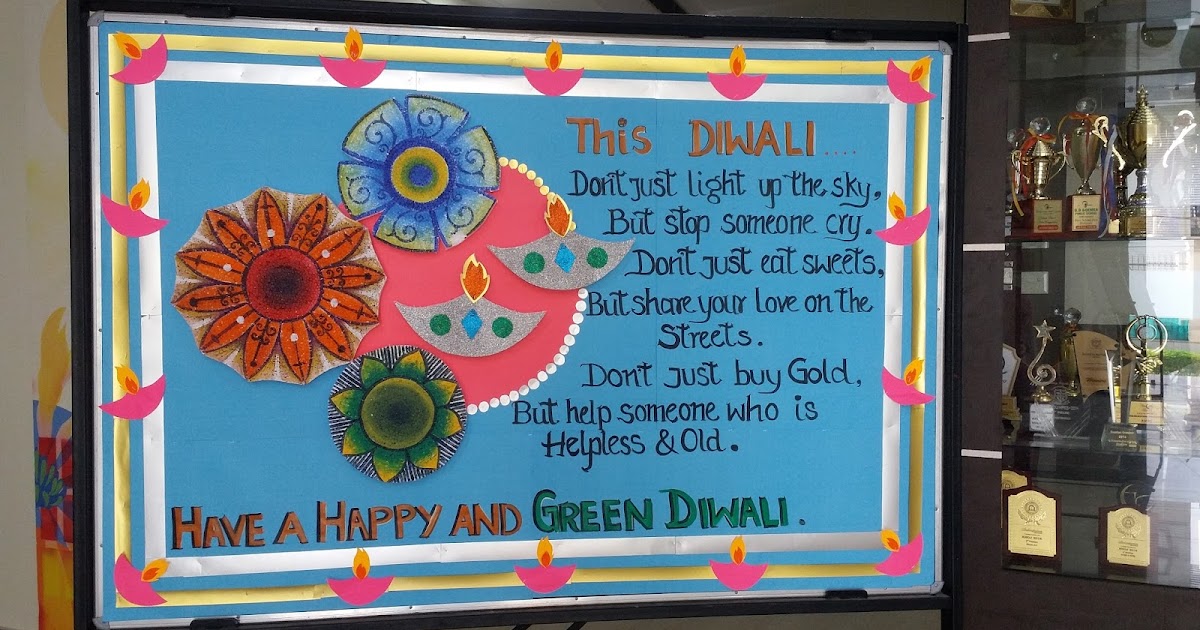 This DIWALI....
Don't just light up the sky,
But stop someone cry.
Don't just eat sweets,
But share your love on the
Streets.
Don't just buy Gold,
But help someone who is
Helpless & Old.
HAVE A HAPPY AND GREEN DIWALI.